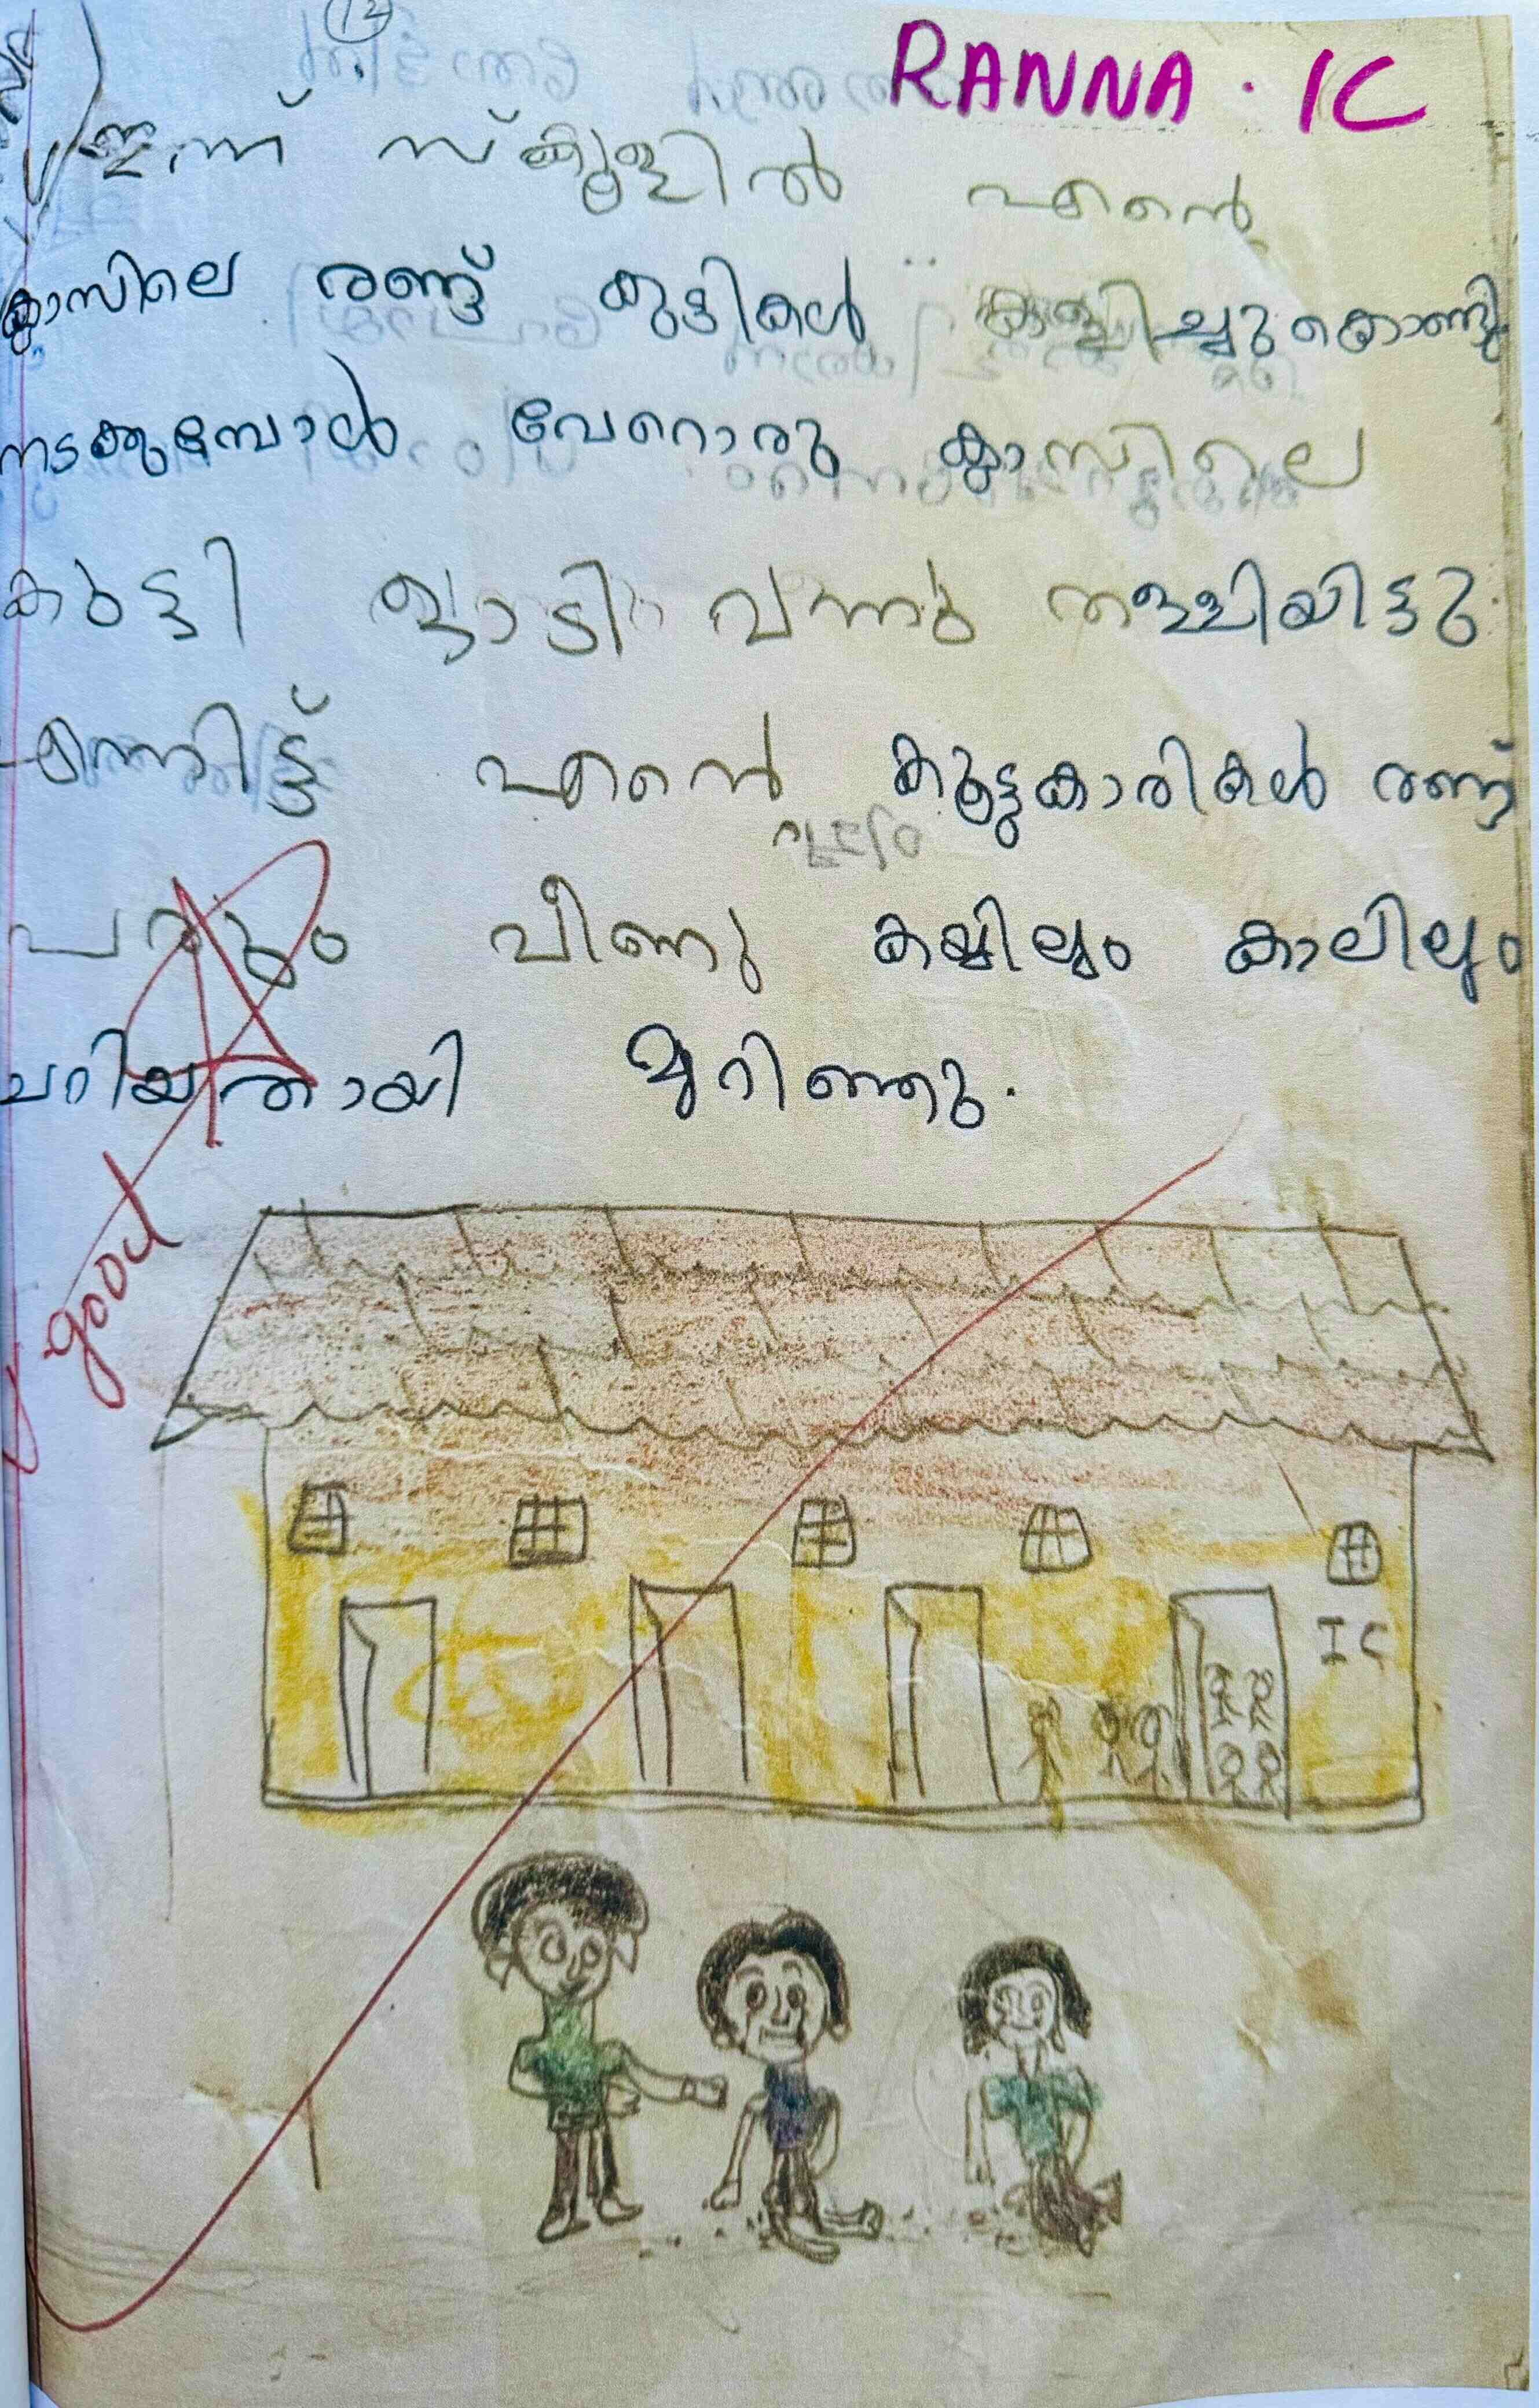 12
RANNA . 1C
ഇന്ന് സ്കൂളിൽ എന്റെ
ക്ലാസിലെ രണ്ട് കുട്ടികൾ കളിച്ചുകൊണ്ടു
നടക്കുമ്പോൾ വേറൊരു ക്ലാസിലെ
കുട്ടി ഓടി വന്നു തള്ളിയിട്ടു
എന്നിട്ട് എന്റെ കൂട്ടുകാരികൾ രണ്ട്
പേരും വീണു കയ്യിലും കാലിലും
ചറിയതായി മുറിഞ്ഞു.
good
1C